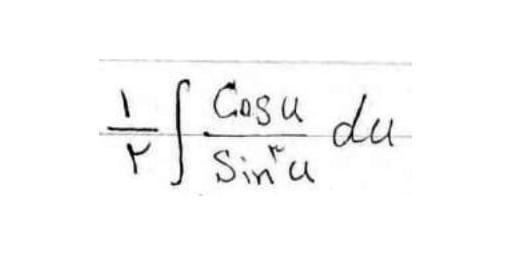 ۱/۲ ∫ Cosu/Sin²u du